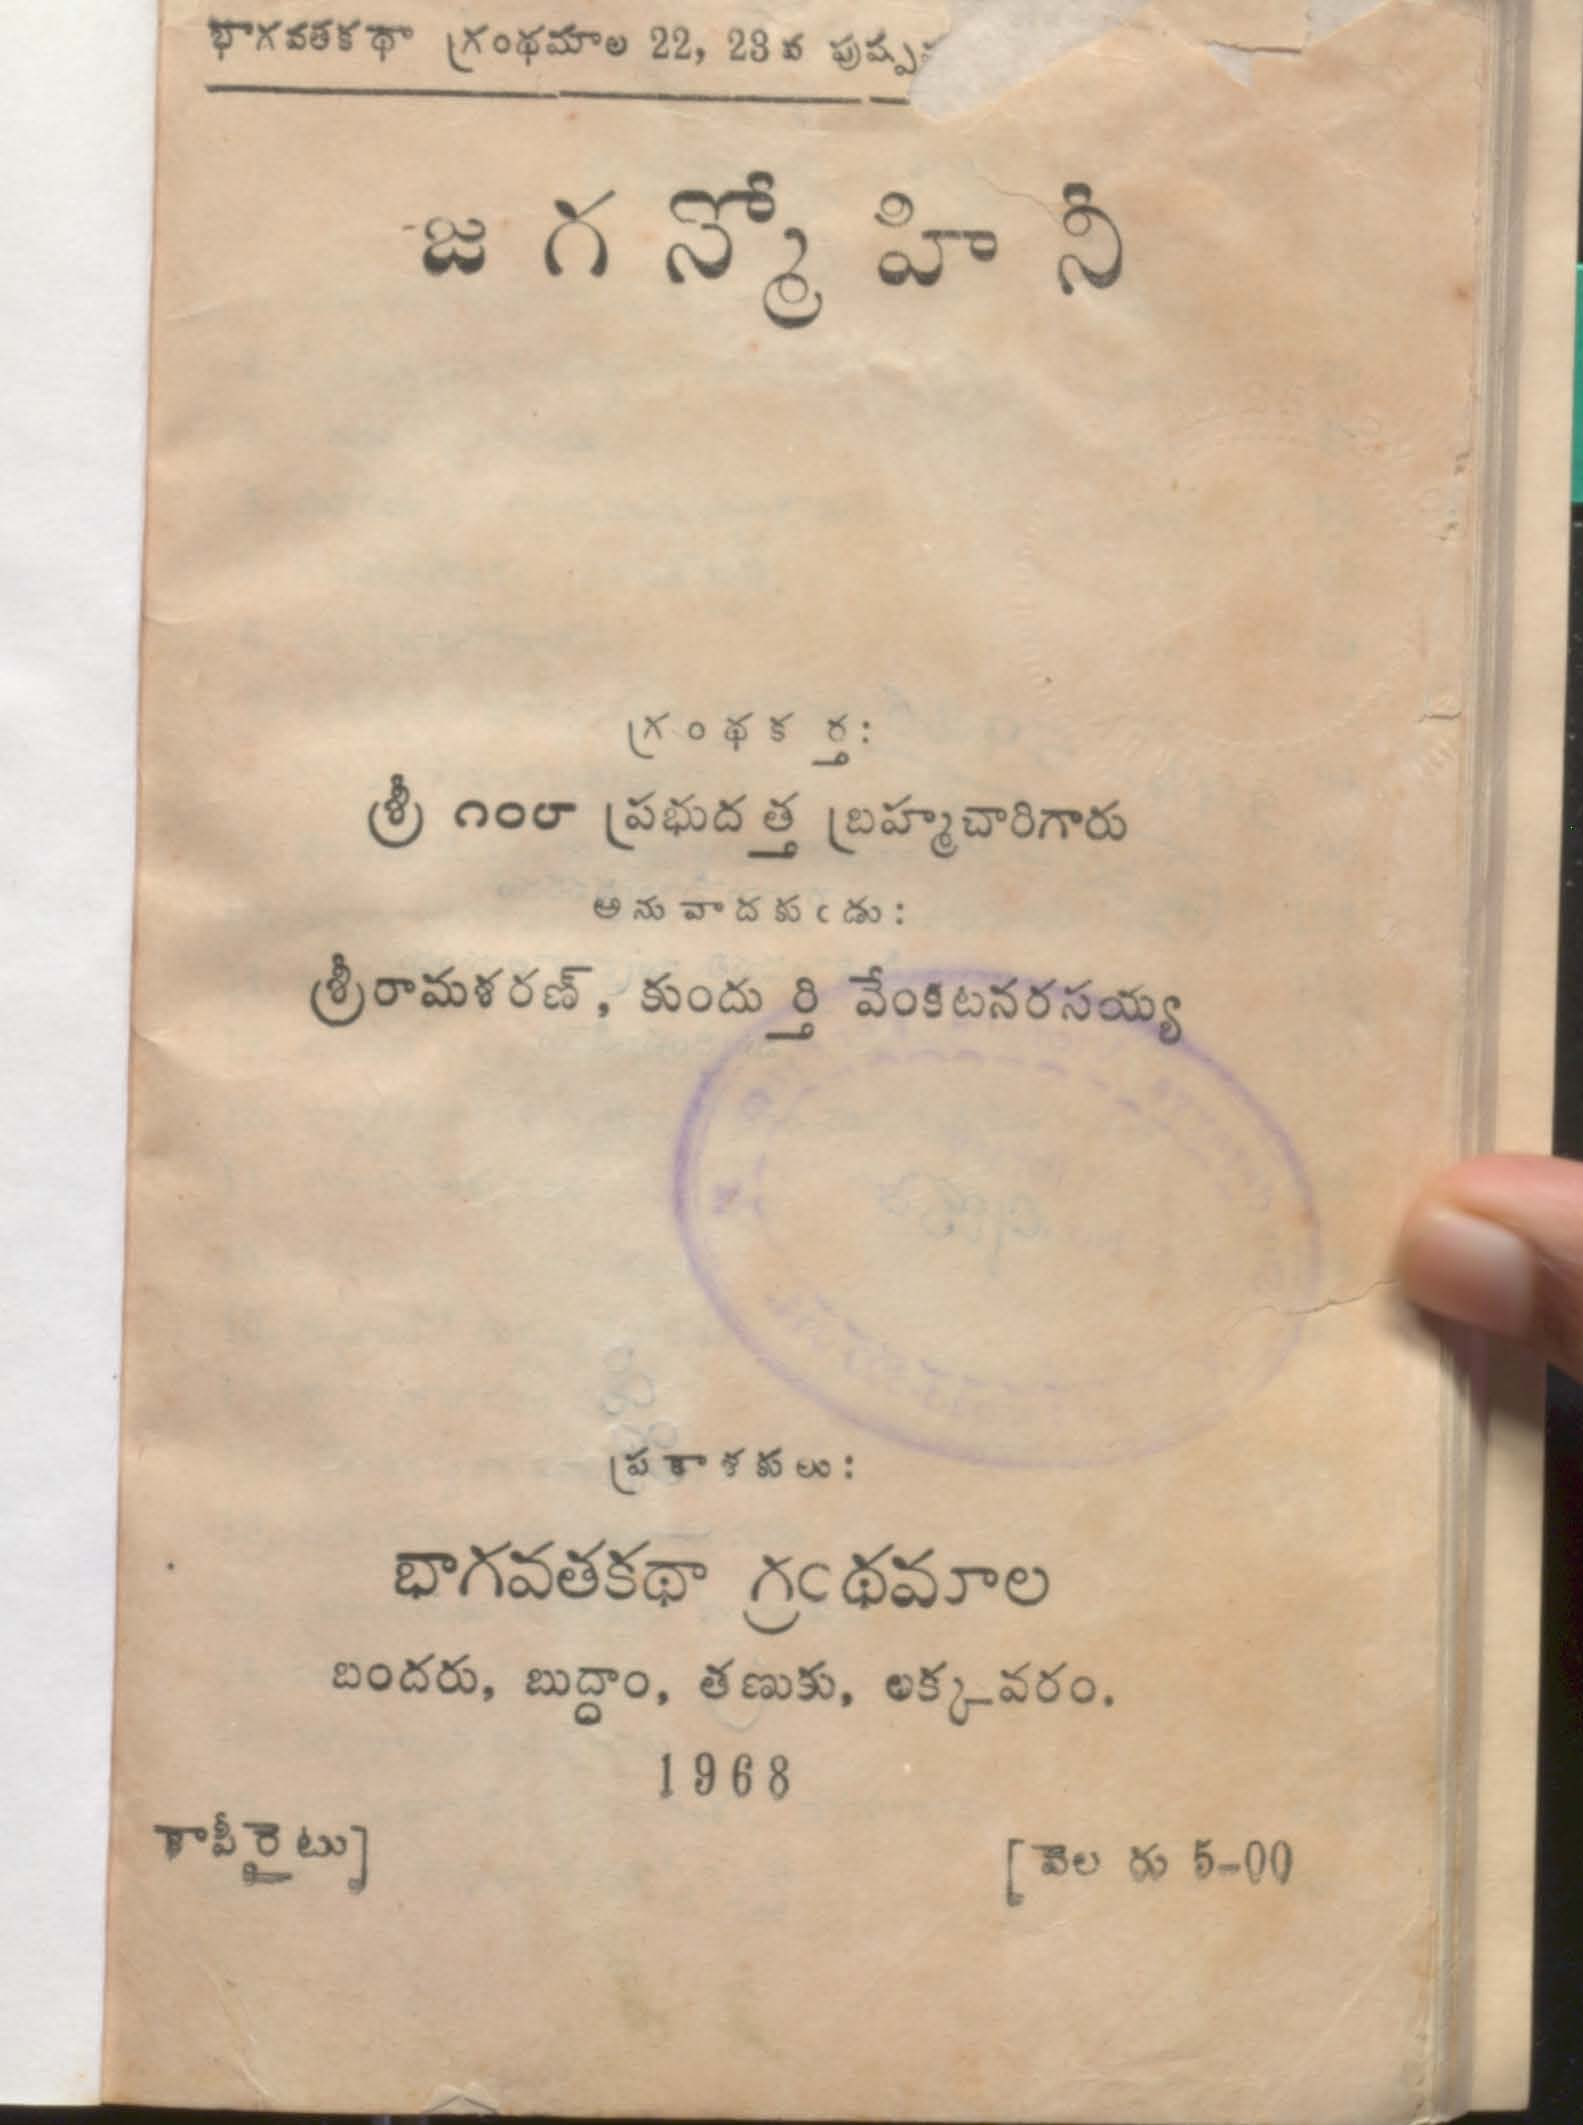 భాగవతకథా గ్రంథమాల 22, 23వ
జగన్మోహినీ
గ్రంథకర్త:
శ్రీ ౧౦౮ ప్రభుదత్త బ్రహ్మచారిగారు
అనువాదకుఁడు:
శ్రీరామశరణ్, కుందుర్తి వేంకటనరసయ్య
ప్రకాశకులు:
భాగవతకథా గ్రఁథమాల
బందరు, బుద్దాం, తణుకు, లక్కవరం.
1968
కాపీరైటు]
[వెల రు 5-00